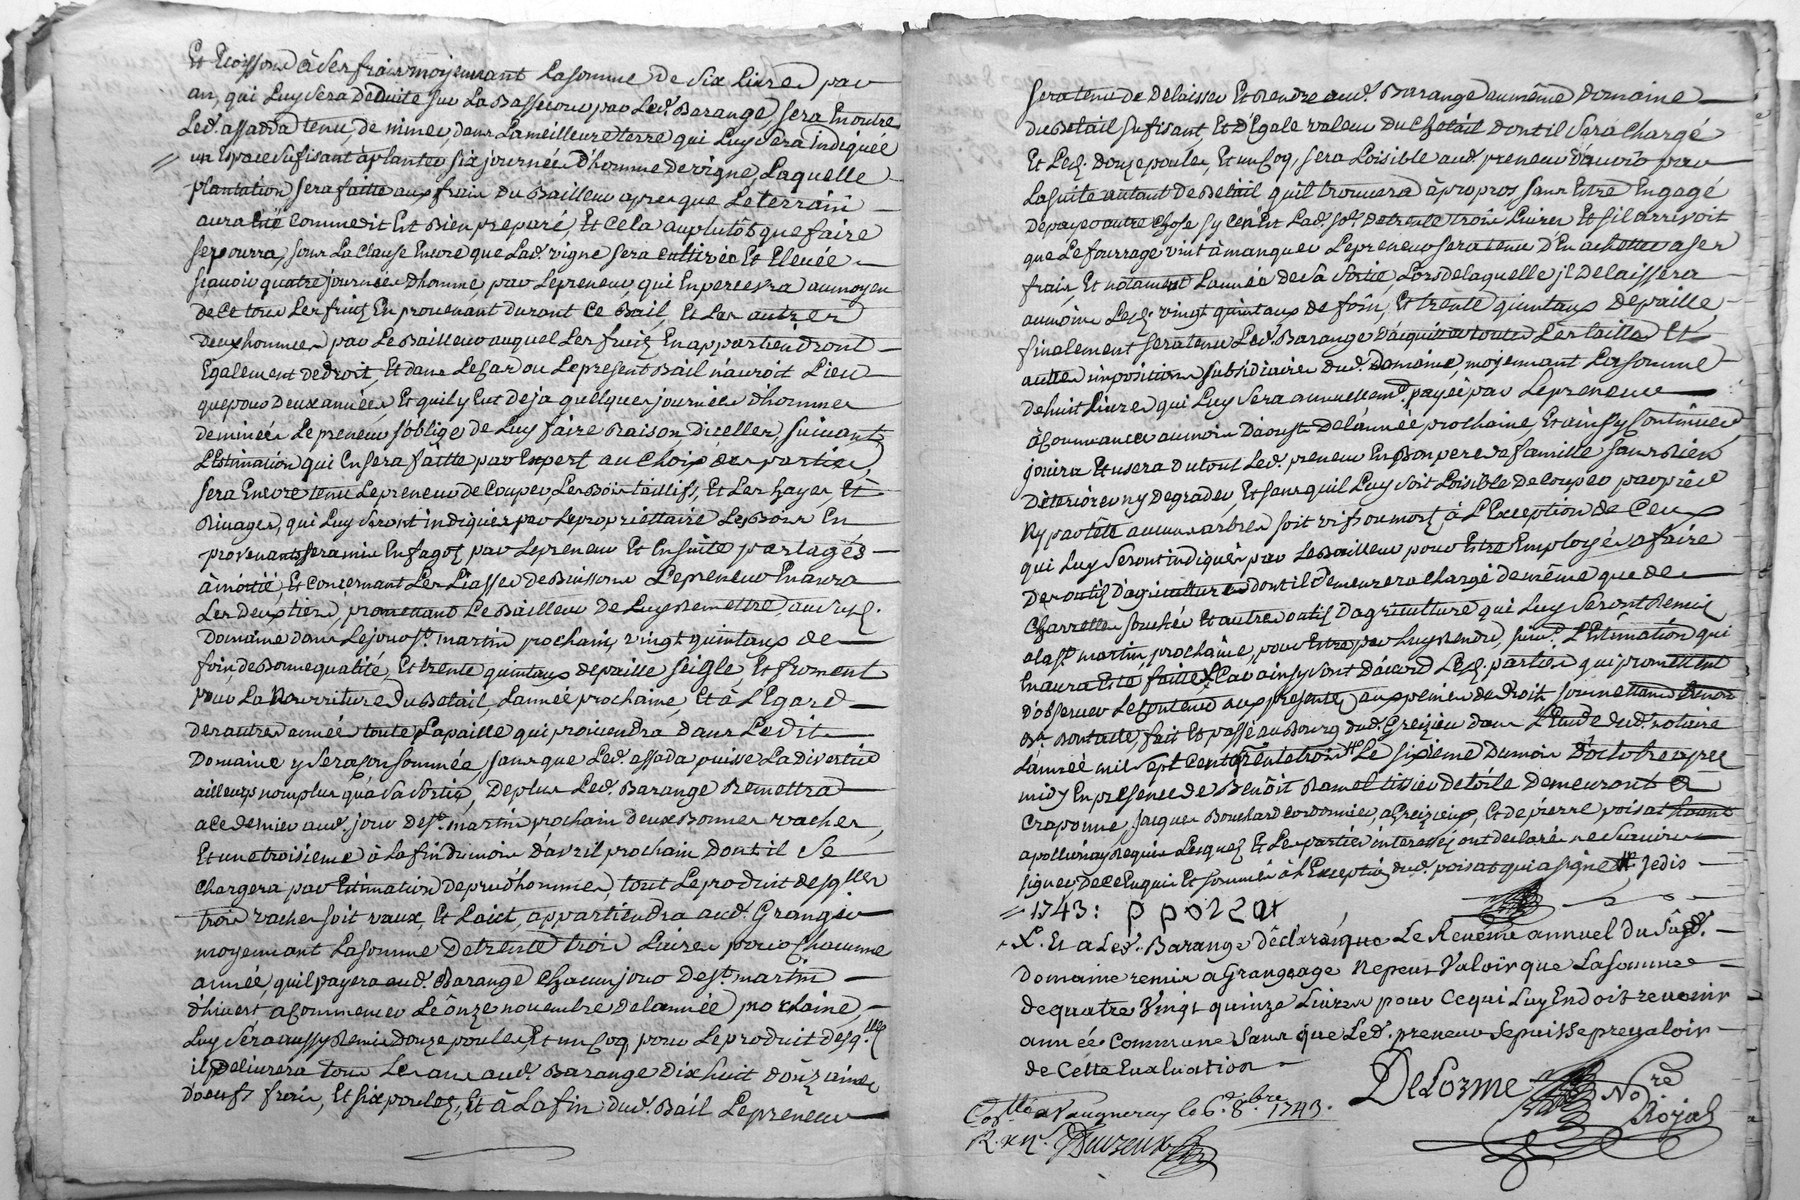 Et Ecossou à Ses frais moyennant La somme de Six Livres par
an, qui Luy Sera Deduite sur La Bassecour par Led. Barange, Sera En outre
Led. assada tenu, de miner, dans La meilleure terre qui Luy Sera Indiquéé
un Espace Sufisant à planter six journées d'homme de vigne, Laquelle
plantation sera faitte aux frais du Bailleur apres que Le terrain
aura Eté comme dit Est Bien preparé, Et Cela auplutôt que faire
se pourra, sous La Clause Encore que Lad. vigne sera cultivéé Et Elevéé
sçavoir quatre journées d'homme, par Le preneur, qui En percevra au moyen
de Ce tous Les fruits En provenant durant Ce Bail, Et Les autres
deux hommées par Le Bailleur auquel Les fruits En appartiendront
Egalement de droit, Et dans Le Cas ou Le present Bail n'auroit Lieu
que pour Deux années Et quil y Eut Deja quelques journées d'homme
de minéés Le preneur s'oblige de Luy faire Raison d'icelles, suivant
L'Estimation qui En sera faitte par Expert au Choix des parties,
Sera Encore tenu Le preneur de Couper, Les Bois taillifs, Et Les hayes, Et
Rivages, qui Luy Seront indiqués par Le propriéttaire Le Bois En
provenant sera mis En fagots par Le preneur Et En suite partagés
à moitié, Et concernant Les Liasses de Buissons Le preneur En aura
Les deux tiers, promettant Le Bailleur de Luy Remettre, au susd.
Domaine dans Le jour St. martin prochain, vingt quintaux de
foin, de Bonne qualité, Et trente quintaux de paille seigle, Et froment
pour La Nourriture du Betail, L'année prochaine, Et à L'Egard
des autres année toute La paille qui proviendra dans Le dit
Domaine y Sera Consomméé, sans que Led. assada puisse La divertir
ailleurs nomplus qu'à Sa Sortie, De plus Led. Barange Remettra
a Ce dernier aud. jour de St. martin prochain deux Bonnes vaches,
Et une troisieme à La fin du mois d'avril prochain Dont il Se
Chargera par Estimation de prud'hommes, tout Le produit desqlles
trois vaches soit vaux, Et Laict, appartiendra aud. Granger
moyennant La somme De trente trois Livres pour Chacunne
année, quil payera aud. Barange Chacun jour de St. martin
d'hivert a Commencer Le ônze novembre de L'année prochaine,
Luy Sera aussy Remis Douze poules, Et un Coq, pour Le produit desq.lles
il Delivrera tous Les ans aud. Barange Dix huit doûzaines
D'oeufs frais, Et six poulets, Et à La fin dud. Bail Le preneur
sera tenu de Delaisser Et Rendre aud. Barange au même Domaine
du Betail sufisant, Et d'Egale valeur du Chetail dont il Sera Chargé
Et Led. Douze poules, Et un Coq, sera Loisible aud. preneur d'avoir par
La suite autant de Betail quil trouvera àpropos sans Entre Engagé
De payer autre Chose sy Ce n'Est Lad. so.e de trente trois Livres Et s'il arrivoit
que Le fourrage vint à manquer Le preneur sera tenu d'En achetter a ses
frais, Et notament L'année de Sa Sortie, Lors de laquelle jl Delaissera
au moins Lesd. vingt quintaux de foin, Et trente quintaux de paille,
finalement sera tenu Led. Barange D'acquitter toutes Les tailles Et
autres impositions subsidiaires dud. Domaine moyennant La somme
de huit Livres qui Luy Sera annuellemt. payéé par Le preneur
à Commancer au mois Daoust De L'annéé prochaine, Et ainsy Continuer
jouira Et usera du tout Led. preneur En Bon pere de famille sans Rien
Deteriorer ny Degrader, Et sans quil Luy Soit Loisible De Couper par pied
Ny par tête aucuns arbres soit vifs ou morts à L'Exception de Ceux
qui Luy Seront indiqués par Le Bailleur pour Estre Employés a faire
Des outils D'agriculture dont il Demeurera Chargé de même que de
Charrette fourchés Et autres outils D'agriculture qui Luy Seront Remis
a la St. martin, prochaine, pour Entre par Luy Rendre, suiv.t L'Estimation qui
En aura Eté faitte X Car ainsy Sont D'acord Les d. parties qui promettent
D'observer Le Contenu aux presentes
fait Et passé au Bourg dud. Grezieu dans L'Etude dud. notaire
L'année mil sept cent quarante trois Le sixieme Du mois D'octobre apres
midy En presence de Benoît Ramel Demeurant a
Craponne, Jacques Bouchard cordonnier, a Grezieux, Et de pierre poisat
Lesquels Et Les parties interessés ont declaré ne Scavoir
signer, De Ce Enquis Et sommés à L'Exception dud. poisat qui a signé Je dis
= 1743: p poizat
X. Et a Led. Barange déclaré que Le Revenu annuel du Susd.
Domaine remis a Grangeage Ne peut Valoir que La Somme
de quatre Vingt quinze Livres pour Ce qui Luy En doit revenir
année Commune Sans que Led. preneur se puisse prevaloir
de Cette Evaluation
DeLorme Nore
Roÿal
Coll.é a Vaugneray le 6.e 8.bre 1743.